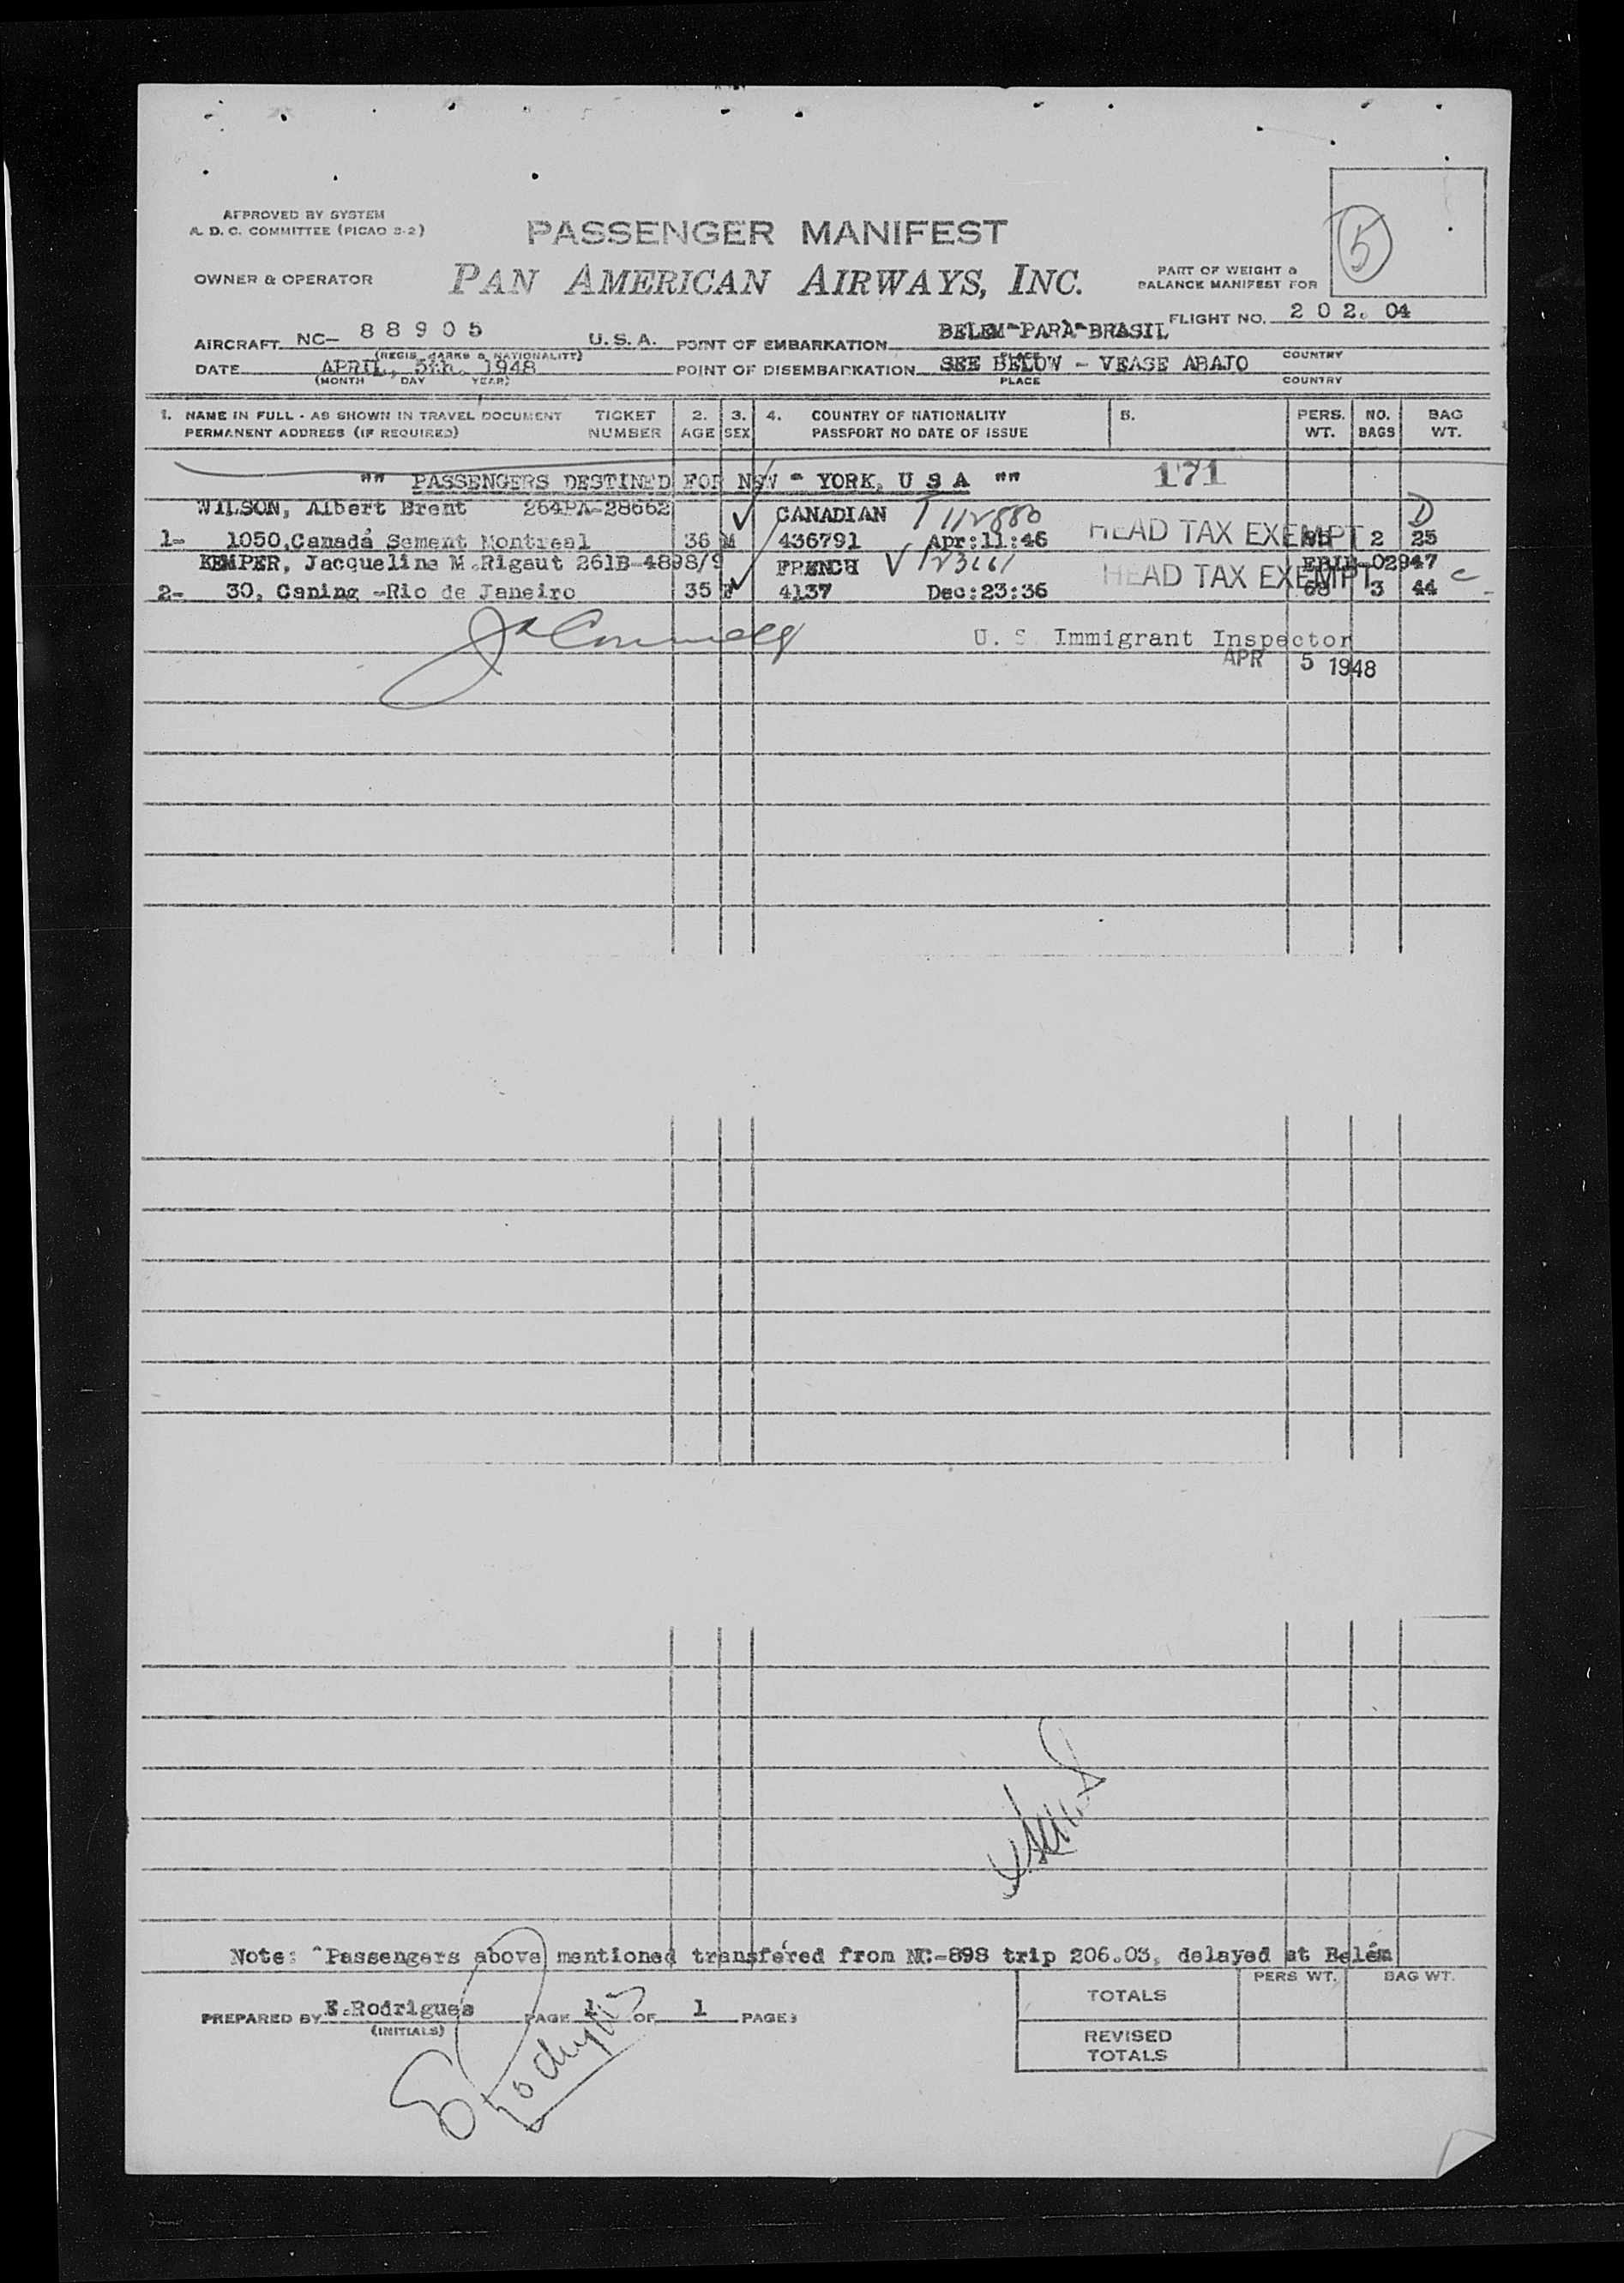 APPROVED BY SYSTEM
A. D. C. COMMITTEE (PICAO S-2)
PASSENGER MANIFEST
5
OWNER & OPERATOR
PAN AMERICAN AIRWAYS, INC.
PART OF WEIGHT &
BALANCE MANIFEST FOR
FLIGHT NO. 2 0 2. 04
AIRCRAFT NC- 8 8 9 0 5 U. S. A. POINT OF EMBARKATION BELEM-PARA-BRASIL
(REGIS. MARKS & NATIONALITY) PLACE COUNTRY
DATE APRIL, 5th. 1948 POINT OF DISEMBARKATION SEE BELOW - VEASE ABAJO
(MONTH DAY YEAR) PLACE COUNTRY
1. NAME IN FULL - AS SHOWN IN TRAVEL DOCUMENT TICKET 2. 3. 4. COUNTRY OF NATIONALITY 5. PERS. NO. BAG
PERMANENT ADDRESS (IF REQUIRED) NUMBER AGE SEX PASSPORT NO DATE OF ISSUE WT. BAGS WT.
"" PASSENGERS DESTINED FOR NEW - YORK, U S A "" 171
WILSON, Albert Brent 264PA-28662 CANADIAN T 112880 D
1- 1050,Canadá Sement Montreal 36 M 436791 Apr:11:46 HEAD TAX EXEMPT 2 25
KEMPER, Jacqueline M.Rigaut 261B-4898/9 FRENCH V 123661 02947
2- 30, Caning -Rio de Janeiro 35 F 4137 Dec:23:36 HEAD TAX EXEMPT 68 3 44 C
U. S. Immigrant Inspector
APR 5 1948
Note: "Passengers above mentioned transfered from NC-898 trip 206.03, delayed at Belém
PERS WT. BAG WT.
TOTALS
PREPARED BY E.Rodrigues PAGE 1 OF 1 PAGES
(INITIALS)
REVISED
TOTALS